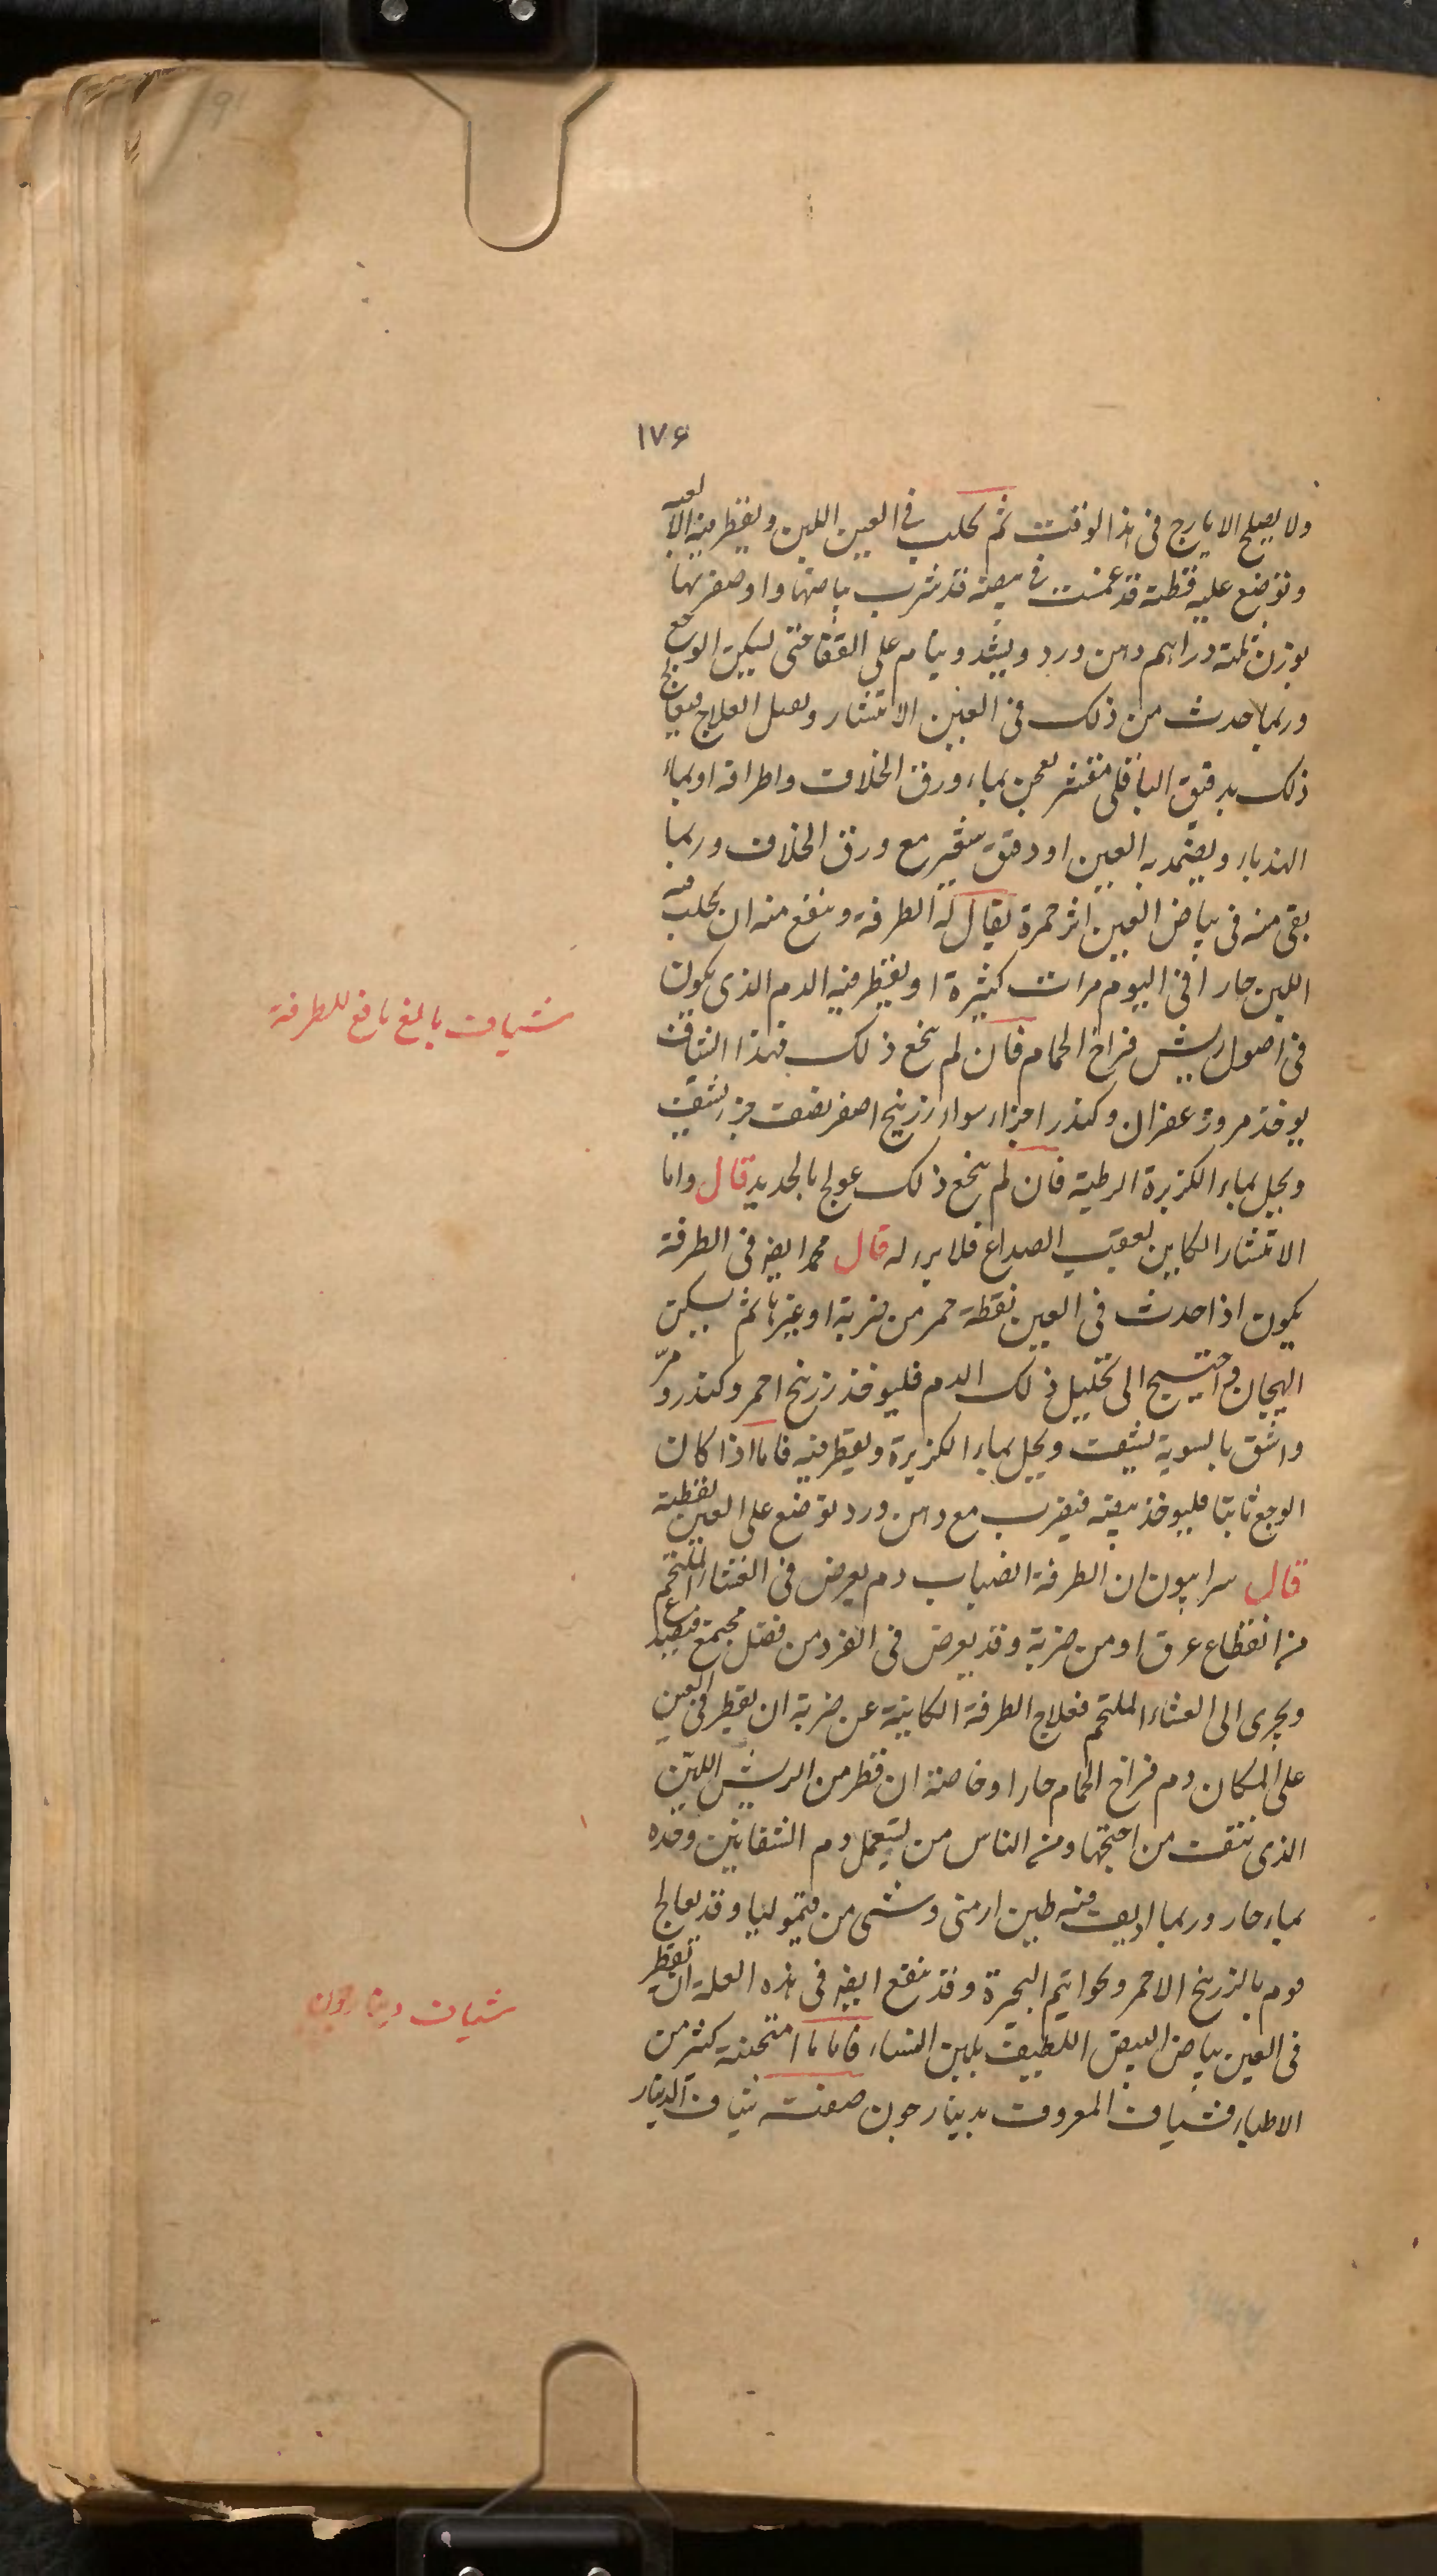 ١٧۶
ولا يصلح الايارج فى هذا الوقت ثم يحلب فى العين اللبن ويقطر فيه الالعبه
وتوضع عليه قطنة قد غمست فى بيضة قد ضرب بياضها وصفرتها
بوزن ثلثة دراهم دهن ورد ويشد وينام على القفا حتى يسكن الوجع
وربما حدث من ذلك فى العين الانتشار وقبل العلاج فيعالج
ذلك بدقيق الباقلى مقشر يعجن بماء ورق الخلاف واطرافه او بماء
الهندباء ويضمد به العين او دقيق شعير مع ورق الخلاف وربما
بقى منه فى بياض العين اثر حمرة يقال له الطرفة وينفع منه ان يحلب فيه
اللبن حارا فى اليوم مرات كثيرة او يقطر فيه الدم الذى يكون
فى اصول ريش فراخ الحمام فان لم ينجع ذلك فهذا الشياف
شياف بالغ نافع للطرفة
يوخذ مر وزعفران وكندر اجزاء سواء زرنيخ اصفر نصف جزء يشيف
ويحل بماء الكزبرة الرطبة فان لم ينجع ذلك عولج بالحديد قال واما
الانتشار الكاين بعقب الصداع فلا برء له قال محمد ايضه فى الطرفة
يكون اذا حدث فى العين نقطة حمر من ضربة او غيرها ثم سكن
الهيجان واحتيج الى تحليل ذلك الدم فليوخذ زرنيخ احمر وكندر ومرّ
واشق بالسوية يشيف ويحل بماء الكزبرة ويقطر فيه فاما اذا كان
الوجع ثابتا فليوخذ بيضة فيضرب مع دهن ورد توضع على العين بقطنة
قال سرابيون ان الطرفة انصباب دم يعرض فى الغشاء الملتحم
من انقطاع عرق او من ضربة وقد يعرض فى الفرد من فضل مجتمع فيصدع
ويجرى الى الغشاء الملتحم فعلاج الطرفة الكاينة عن ضربة ان يقطر فى العين
على المكان دم فراخ الحمام حارا وخاصة ان قطر من الريش اللين
الذى نتف من اجنحتها ومن الناس من يستعمل دم الشفانين وحده
بماء حار وربما اديف فيه طين ارمنى وشى من قيموليا وقد يعالج
قوم بالزرنيخ الاحمر وبخواتيم البحيرة وقد ينفع ايضه فى هذه العلة ان يقطر
فى العين بياض البيض اللطيف بلبن النساء فاما ما امتحنه كثير من
شياف دينارجون
الاطباء فشياف المعروف بدينارجون صفت شياف الدينار